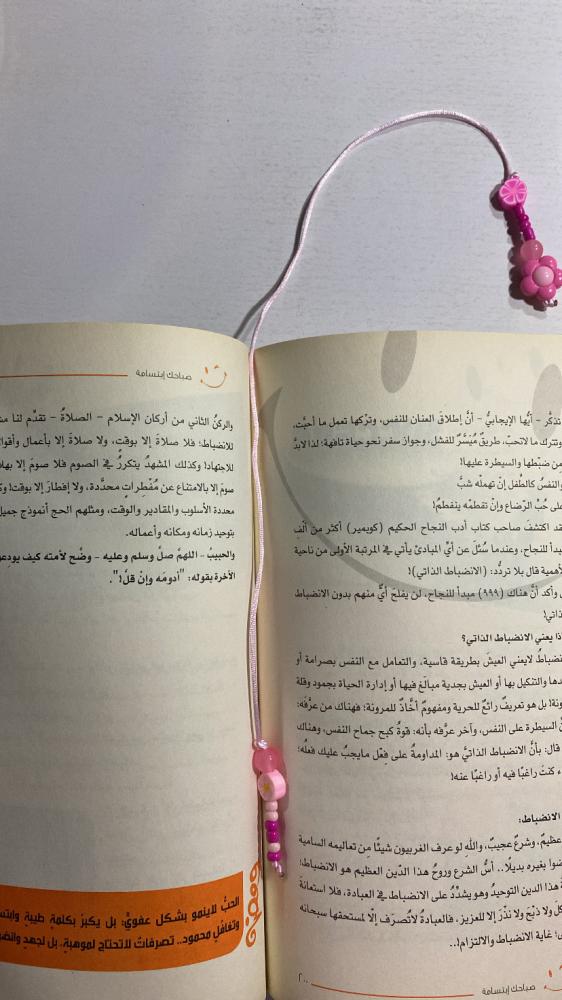 تذكَّر – أيُّها الإيجابيُّ – أنَّ إطلاقَ العنان للنفس، وتركَها تعمل ما أحبَّت،
وتترك ما لاتحبّ، طريقٌ مُيَسَّرٌ للفشل، وجواز سفر نحو حياة تافهة: لذا لابدَّ
من ضبْطها والسيطرة عليها!
والنفسُ كالطفل إنْ تهملْه شبَّ
على حُبِّ الرَّضاع وإنْ تفطمْه ينفطمُ!
قد اكتشفَ صاحب كتاب أدب النجاح الحكيم (كويمير) أكثر من ألْف
للنجاح، وعندما سُئلَ عن أيِّ المبادئ يأتي في المرتبة الأولى من ناحية
الأهمية قال بلا تردُّد: (الانضباط الذاتي)!
وأكد أنَّ هناك (٩٩٩) مبدأ للنجاح، لن يفلحَ أيٌّ منهم بدون الانضباط
يعني الانضباط الذاتي؟
لايعني العيشَ بطريقة قاسية، والتعامل مع النفس بصرامة أو
والتنكيل بها أو العيش بجدية مبالَغ فيها أو إدارة الحياة بجمود وقلة
بل هو تعريف رائعٌ للحرية ومفهومٌ أخَّاذٌ للمرونة! فهناك من عرَّفه:
السيطرة على النفس، وآخر عرَّفه بأنه: قوةُ كبح جماح النفس، وهناك
قال: بأنَّ الانضباط الذاتيَّ هو: المداومةُ على فِعْل مايجبُ عليك فعلُه؛
كنتَ راغبًا فيه أو راغبًا عنه!
الانضباط:
عظيمٌ، وشرعٌ عجيبٌ، واللهِ لو عرف الغربيون شيئًا مِن تعاليمه السامية
بغيره بديلًا.. أسُّ الشرع وروحُ هذا الدِّين العظيم هو الانضباط؛
هذا الدين التوحيدُ وهو يشدِّدُ على الانضباط في العبادة، فلا استعانةَ
ولا ذبْحَ ولا نَذْرَ إلا للعزيز، فالعبادةُ لاتُصرَف إلَّا لمستحقها سبحانه
غاية الانضباط والالتزام!..
صباحك إبتسامة
صباحك إبتسامة
والركنُ الثاني من أركان الإسلام – الصلاةُ – تقدِّم لنا
للانضباط؛ فلا صلاةَ إلا بوقت، ولا صلاةَ إلا بأعمال
للاجتهاد! وكذلك المشهدُ يتكررُ في الصوم فلا صومَ إلا
صومَ إلا بالامتناع عن مُفْطرات محدَّدة، ولا إفطارَ إلا بوقت!
محددة الأسلوب والمقادير والوقت، ومثلهم الحج أنموذج
بتوحيد زمانه ومكانه وأعماله.
والحبيبُ – اللهمَّ صلِّ وسلم وعليه – وضَّح لأمته كيف
الآخرة بقوله: "أدومُه وإنْ قلَّ!".
ومضة
الحبُّ لاينمو بشكل عفويٍّ؛ بل يكبرُ بكلمة طيبة
وتغافُل محمود.. تصرفات لاتحتاج لموهبة، بل لجهد